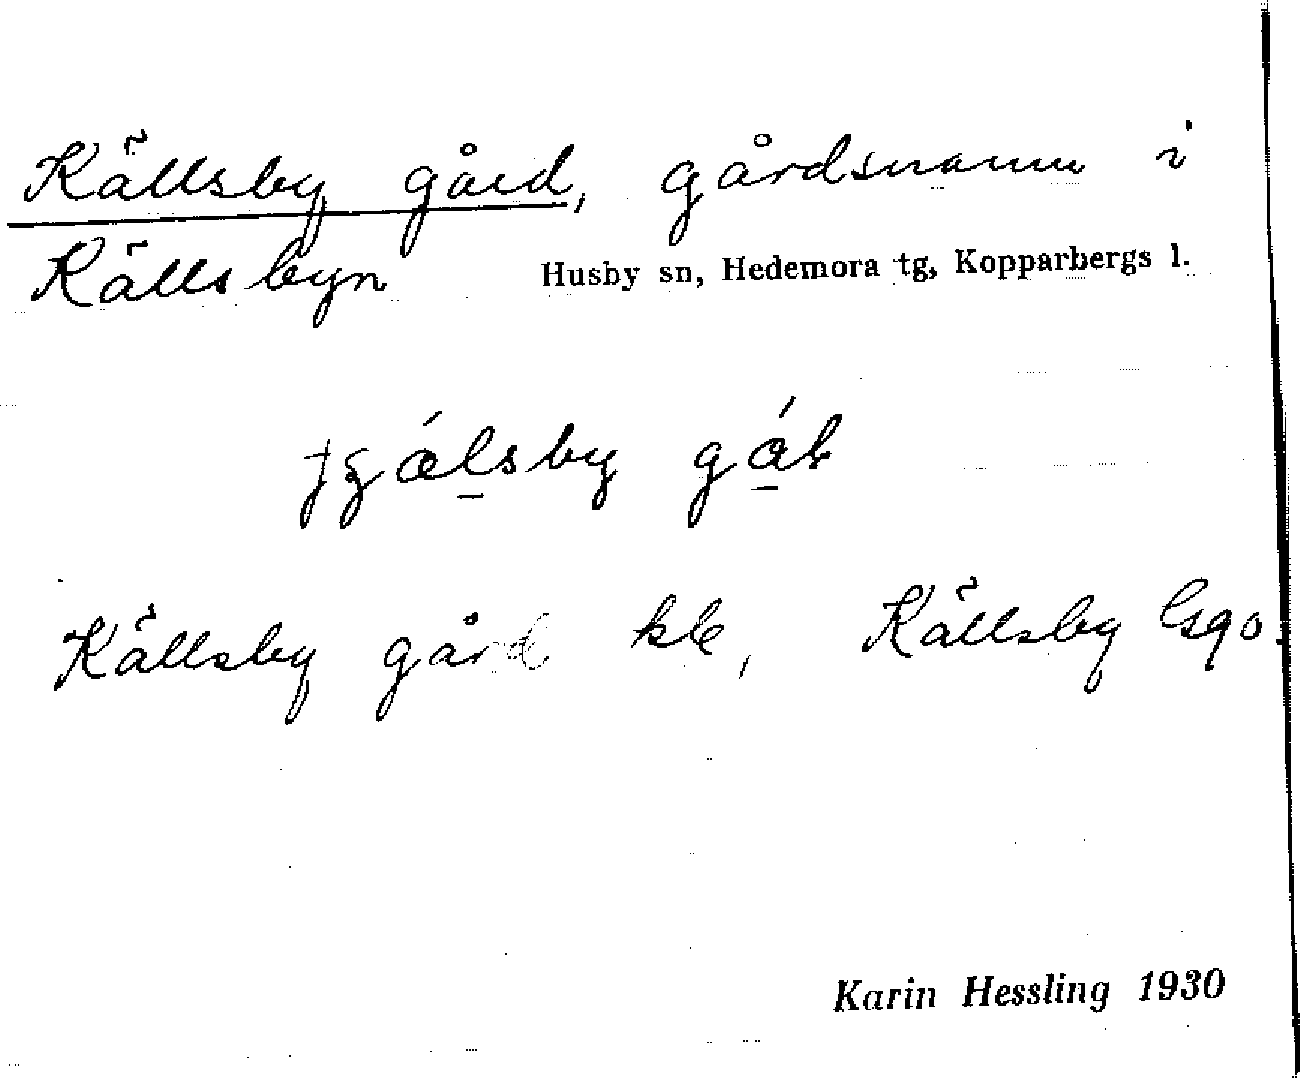 Källsby gård, gårdsnamn i
Källsbyn Husby sn, Hedemora tg, Kopparbergs l.
Källsby gård Källsby
Karin Hessling 1930